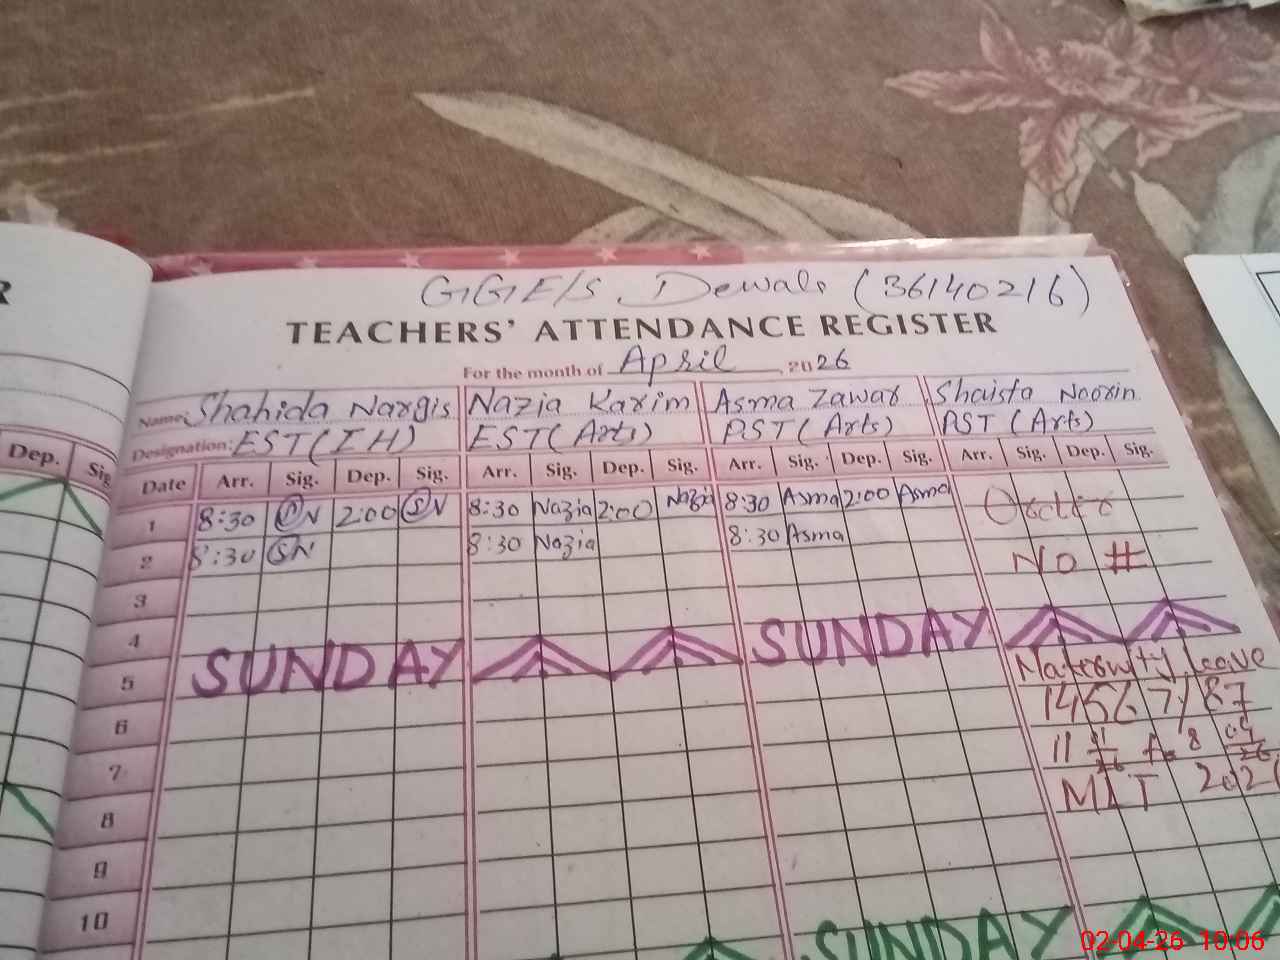 GGE/S Dewal (36140216)
TEACHERS' ATTENDANCE REGISTER
For the month of April 2026
Name: Shahida Nargis Nazia Karim Asma Zawar Shaista Noorin
Designation: EST (IH) EST (Arts) PST (Arts) PST (Arts)
Dep. Sig
Date Arr. Sig. Dep. Sig. Arr. Sig. Dep. Sig. Arr. Sig. Dep. Sig. Arr. Sig. Dep. Sig.
1 8:30 SN 2:00 SN 8:30 Nazia 2:00 Nazia 8:30 Asma 2:00 Asma Order
2 8:30 SN 8:30 Nazia 8:30 Asma No #
3
4
5 SUNDAY SUNDAY
Maternity Leave
6
7
MIT
8
9
10
SUNDAY
02-04-26 10:06